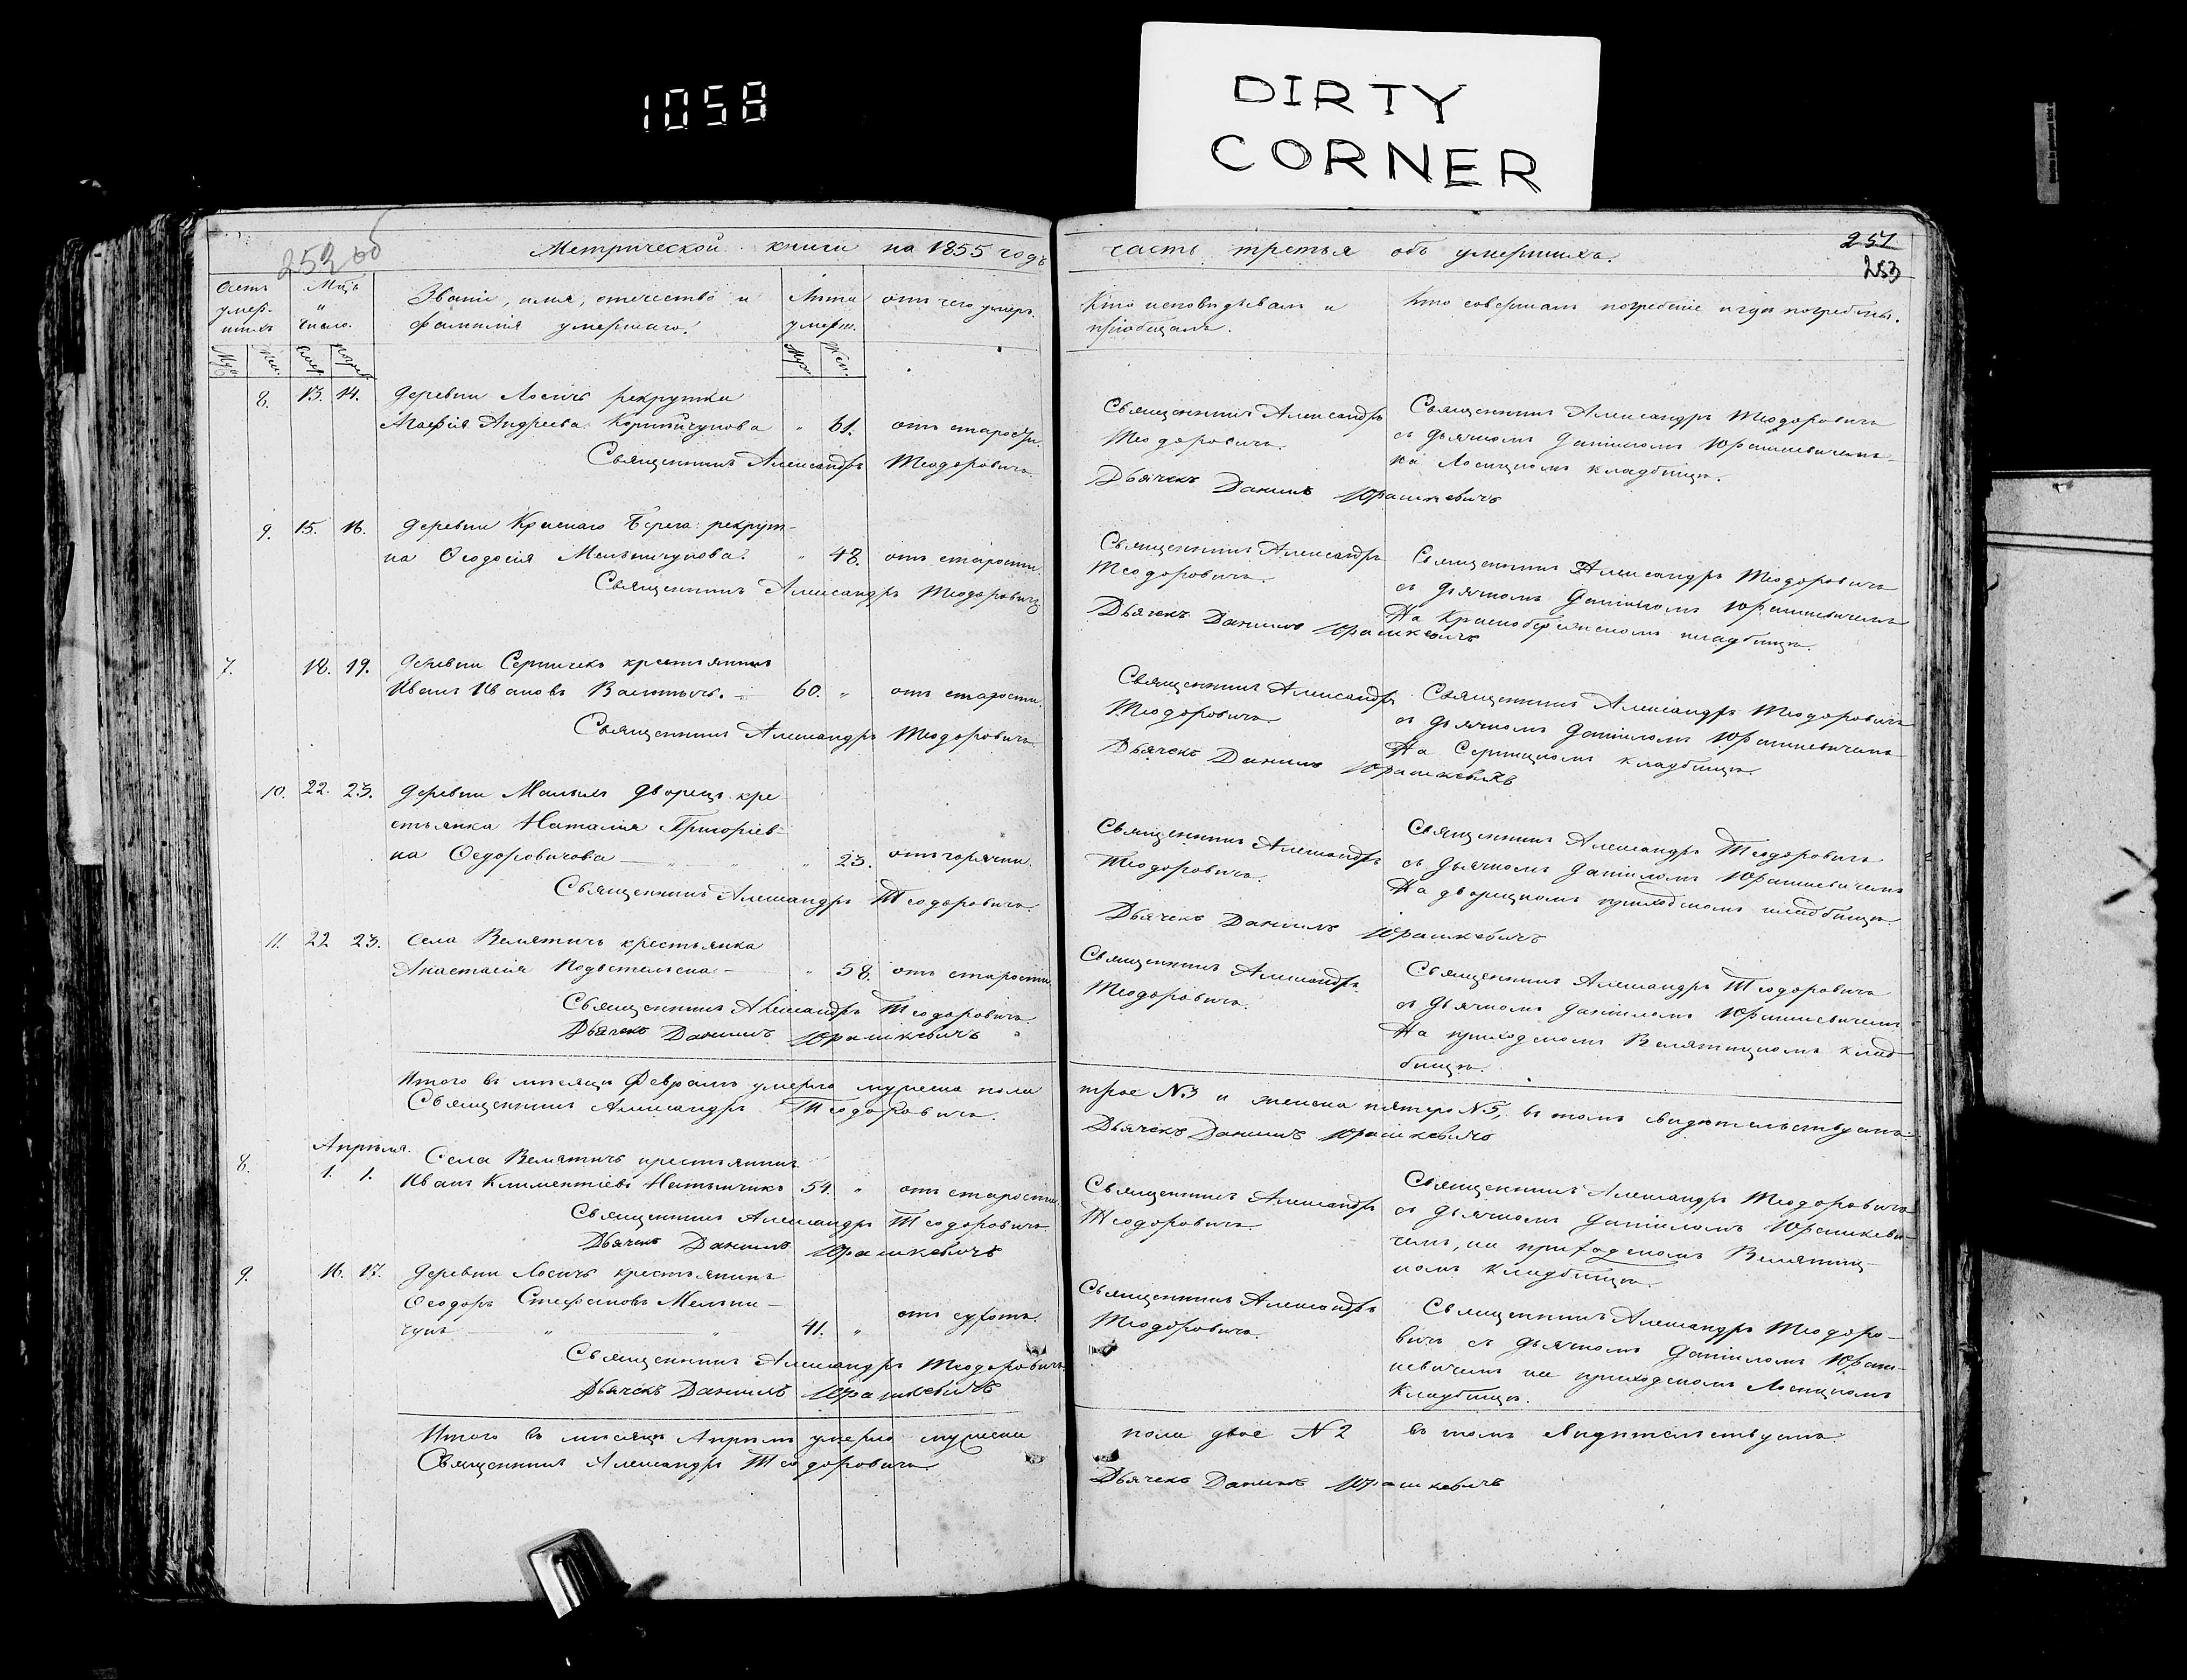 1058
DIRTY
CORNER
253 об
Метрической книги на 1855 годъ
часть третья объ умершихъ.
251
253
Счетъ умер-шихъ
Мцъ и число.
Званіе, имя, отечество и
фамилія умершаго.
Лѣта
умерш.
отъ чего умеръ.
Кто исповѣдывалъ и
пріобщалъ.
Кто совершалъ погребеніе и гдѣ погребены.
Муж. Жен.
Муж. Жен.
8. 13. 14. Деревни Лосичъ рекрутка
Агафія Андреева " 61. отъ старости.
Священникъ Александръ Теодоровичъ
Священникъ Александръ
Теодоровичъ.
Дьячекъ Даніилъ Юрашкевичъ
Священникъ Александръ Теодоровичъ
съ дьячкомъ Даніиломъ Юрашкевичемъ
на Лосицкомъ кладбищѣ.
9. 15. 16. Деревни Краснаго Берега рекрут-
ка Ѳеодосія Мельничукова. " 48. отъ старости
Священникъ Александръ Теодоровичъ
Священникъ Александръ
Теодоровичъ.
Дьячекъ Даніилъ Юрашкевичъ
Священникъ Александръ Теодоровичъ
съ дьячкомъ Даніиломъ Юрашкевичемъ
На Краснобережскомъ кладбищѣ.
7. 18. 19. Деревни Серничекъ крестьянинъ
Иванъ Ивановъ 60. " отъ старости.
Священникъ Александръ Теодоровичъ
Священникъ Александръ
Теодоровичъ.
Дьячекъ Даніилъ Юрашкевичъ
Священникъ Александръ Теодоровичъ
съ дьячкомъ Даніиломъ Юрашкевичемъ
На Серницкомъ кладбищѣ.
10. 22. 23. Деревни Малыхъ Дворецъ кре-
стьянка Наталія Григоріев-
на Ѳедоровичова " 23. отъ горячки.
Священникъ Александръ Теодоровичъ.
Священникъ Александръ
Теодоровичъ.
Дьячекъ Даніилъ Юрашкевичъ
Священникъ Александръ Теодоровичъ
съ дьячкомъ Даніиломъ Юрашкевичемъ
На дворецкомъ приходскомъ кладбищѣ.
11. 22 23. Села Велятичъ крестьянка
Анастасія " 58. отъ старости
Священникъ Александръ Теодоровичъ.
Дьячекъ Даніилъ Юрашкевичъ
Священникъ Александръ
Теодоровичъ.
Священникъ Александръ Теодоровичъ
съ дьячкомъ Даніиломъ Юрашкевичемъ
На приходскомъ Велятицкомъ клад-
бищѣ.
Итого въ мѣсяцѣ Февралѣ умерло мужеска пола
трое №3 и женска пятеро №5, въ томъ свидѣтельствуемъ.
Священникъ Александръ Теодоровичъ.
Дьячекъ Даніилъ Юрашкевичъ
Апрѣля.
8. 1. 1. Села Велятичъ крестьянинъ
Иванъ Климентіевъ 54. " отъ старости
Священникъ Александръ Теодоровичъ
Дьячекъ Даніилъ Юрашкевичъ
Священникъ Александръ
Теодоровичъ.
Священникъ Александръ Теодоровичъ
съ дьячкомъ Даніиломъ Юрашкеви-
чемъ, на приходскомъ Велятиц-
комъ кладбищѣ.
9. 16. 17. Деревни Лосичъ крестьянинъ
Ѳеодоръ Стефановъ Мельни-
чукъ 41. " отъ сухотъ.
Священникъ Александръ Теодоровичъ
Дьячекъ Даніилъ Юрашкевичъ
Священникъ Александръ
Теодоровичъ.
Священникъ Александръ Теодоро-
вичъ съ дьячкомъ Даніиломъ Юраш-
кевичемъ на приходскомъ Лосицкомъ
кладбищѣ.
Итого въ мѣсяцѣ Апрѣлѣ умерло мужеска
пола двое №2 въ томъ свидѣтельствуемъ.
Священникъ Александръ Теодоровичъ
Дьячекъ Даніилъ Юрашкевичъ